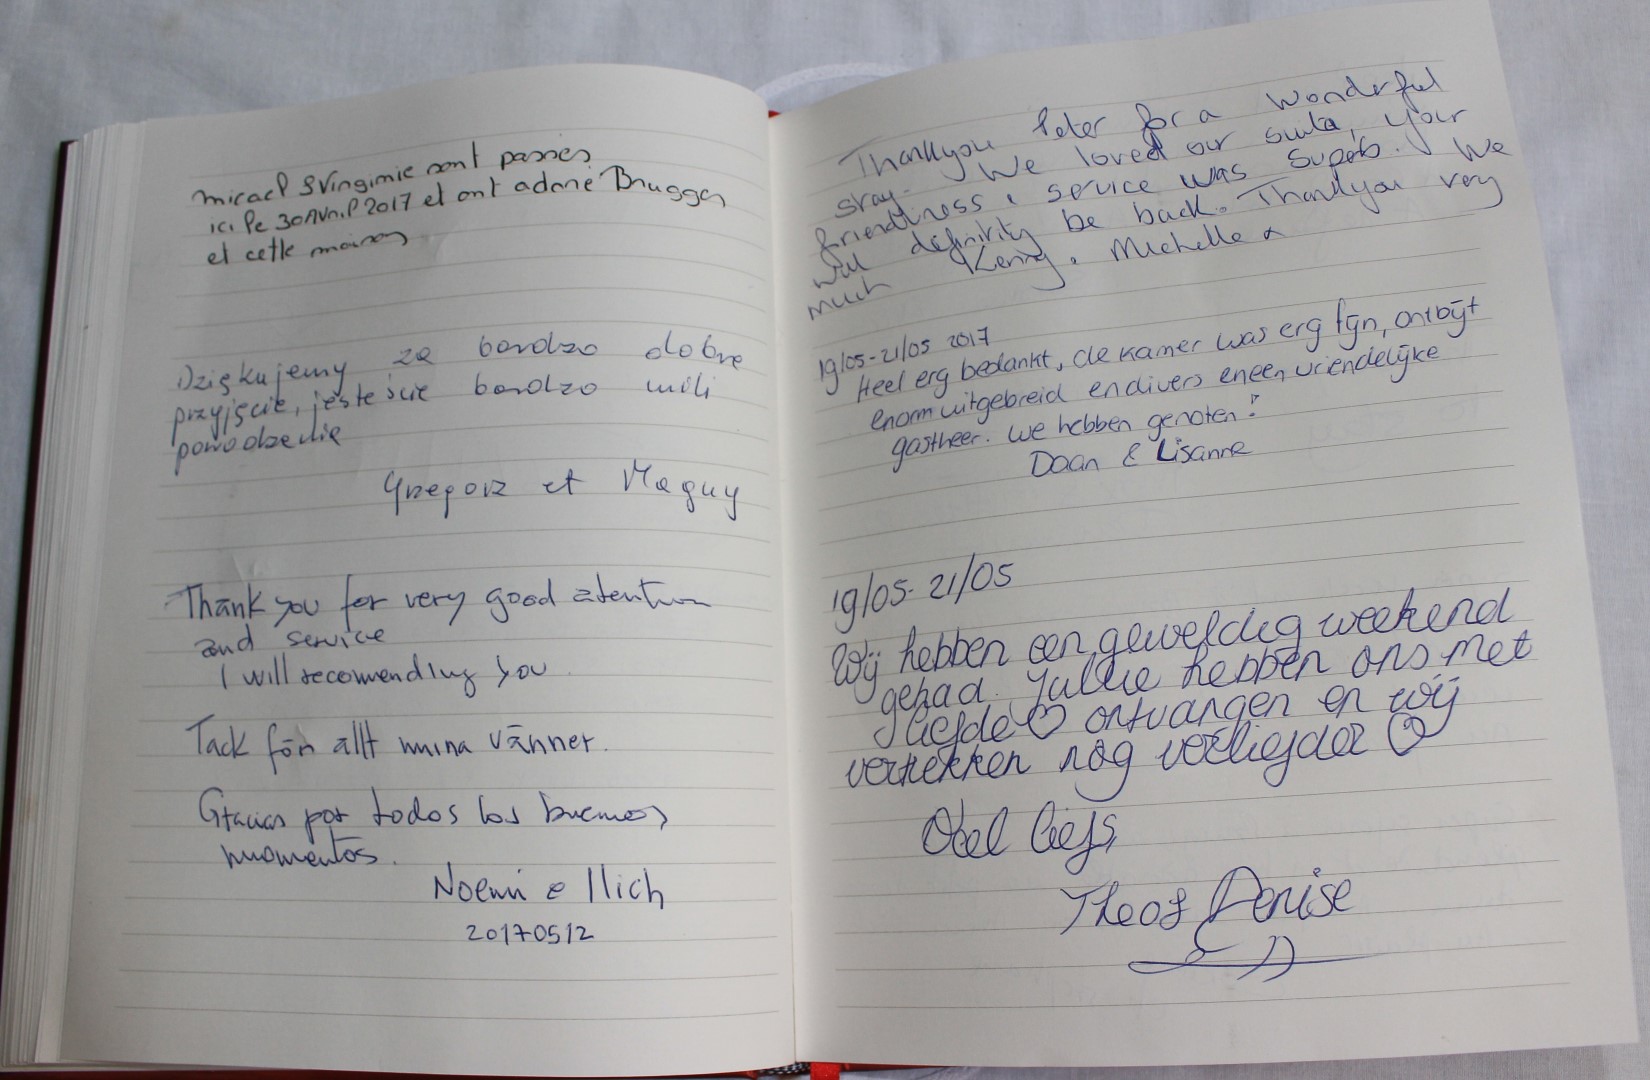 micael & Virginie sont passés
ici le 30 Avril 2017 et ont adoré Brugges
et cette maison
Dziękujemy za bardzo dobre
przyjęcie, jesteście bardzo mili
powodzenia
Grzegorz et Maguy
Thank you for very good atention
and service
I will recommending you.
Tack för allt mina vänner.
Gracias por todos los buenos
momentos.
Noemi e Ilich
20170512
Thankyou Peter for a wonderful
stay. We loved our suite, your
friendliness & service was superb. We
will definitly be back. Thankyou very
much
Kenny & Michelle x
19/05-21/05 2017
Heel erg bedankt, de kamer was erg fijn, ontbijt
enorm uitgebreid en divers en een vriendelijke
gastheer. We hebben genoten!
Daan & Lisanne
19/05-21/05
Wij hebben een geweldig weekend
gehad. Jullie hebben ons met
liefde ♡ ontvangen en wij
vertrekken nog verliefder
Veel liefs,
Theo & Denise